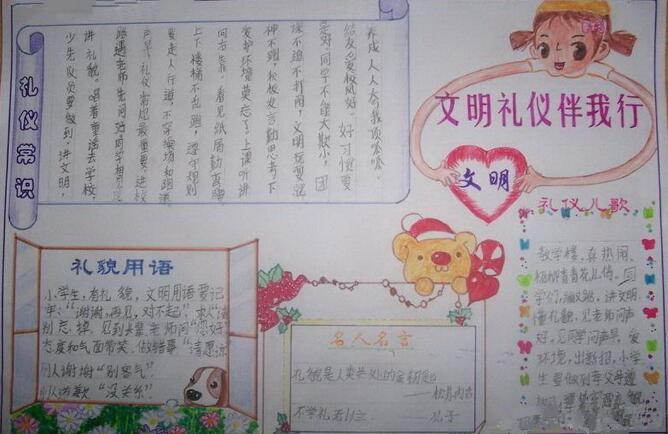 文明礼仪伴我行
文明
礼仪常识
少先队员要做到，讲文明，
讲礼貌。唱着童谣去学校，
路遇老师先问好，同学相
声早。礼仪常规最重要。进校
要走人行道，不穿操场和跑道
上下楼梯不乱跑，遵守规则
向右靠。看见纸屑勤弯腰
爱护环境莫忘了。上课听讲
神不跑，积极发言勤思考。下
课不追不打闹，文明玩耍
是好，同学不能大欺小，团
结友爱校风好。好习惯要
养成，人人夸我顶呱呱。
礼貌用语
小学生，有礼貌，文明用语要记
牢：“谢谢，再见，对不起”求人“请”
别忘掉。见到长辈老师问“您好”
态度和气面带笑。做错事“请原谅
别人谢谢“别客气”
别人道歉“没关系”
名人名言
礼貌是人类共处的金钥匙
——松苏内吉
不学礼无以立 ——孔子
礼仪儿歌
教学楼，真热闹，
花儿俏。同
学们，讲文明，
懂礼貌，见老师问声
好，见同学问声早，爱
环境，小学
生要做到孝父母